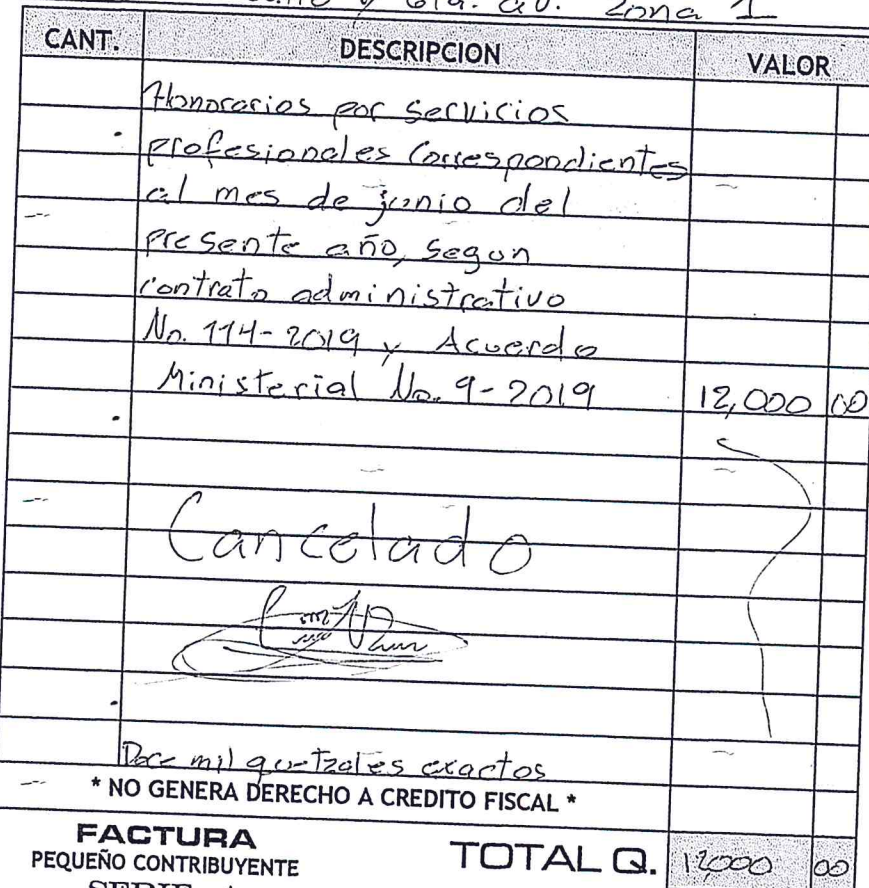 y 6ta. av. Zona 1
CANT. DESCRIPCION VALOR
Honorarios por servicios
profesionales correspondientes
al mes de junio del
presente año, segun
contrato administrativo
No. 114-2019 y Acuerdo
Ministerial No. 9-2019 12,000 00
Cancelado
Doce mil quetzales exactos
* NO GENERA DERECHO A CREDITO FISCAL *
FACTURA
PEQUEÑO CONTRIBUYENTE
TOTAL Q. 12000 00
SERIE